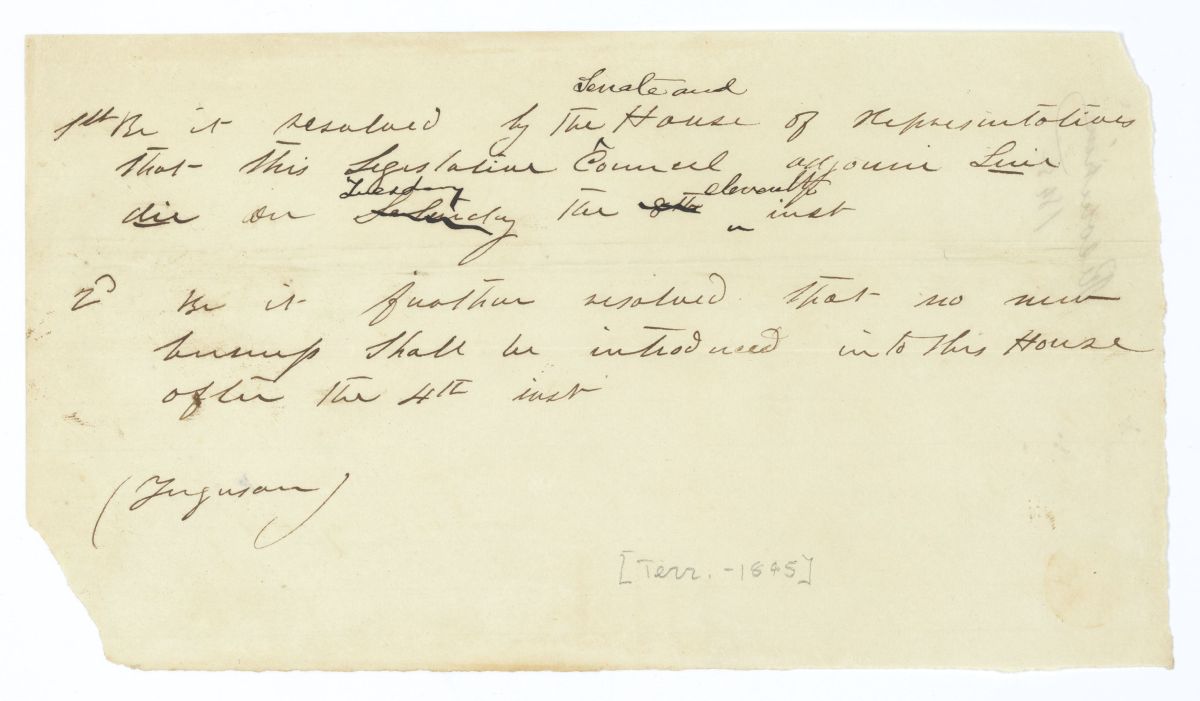 Senate and
1st Be it resolved by the House of Representatives
that this Legislative Council adjourn Sine
Tuesday eleventh
die on Saturday the 8th inst
2d Be it further resolved that no new
business shall be introduced into this House
after the 4th inst
(Ferguson)
[Terr. - 1845]